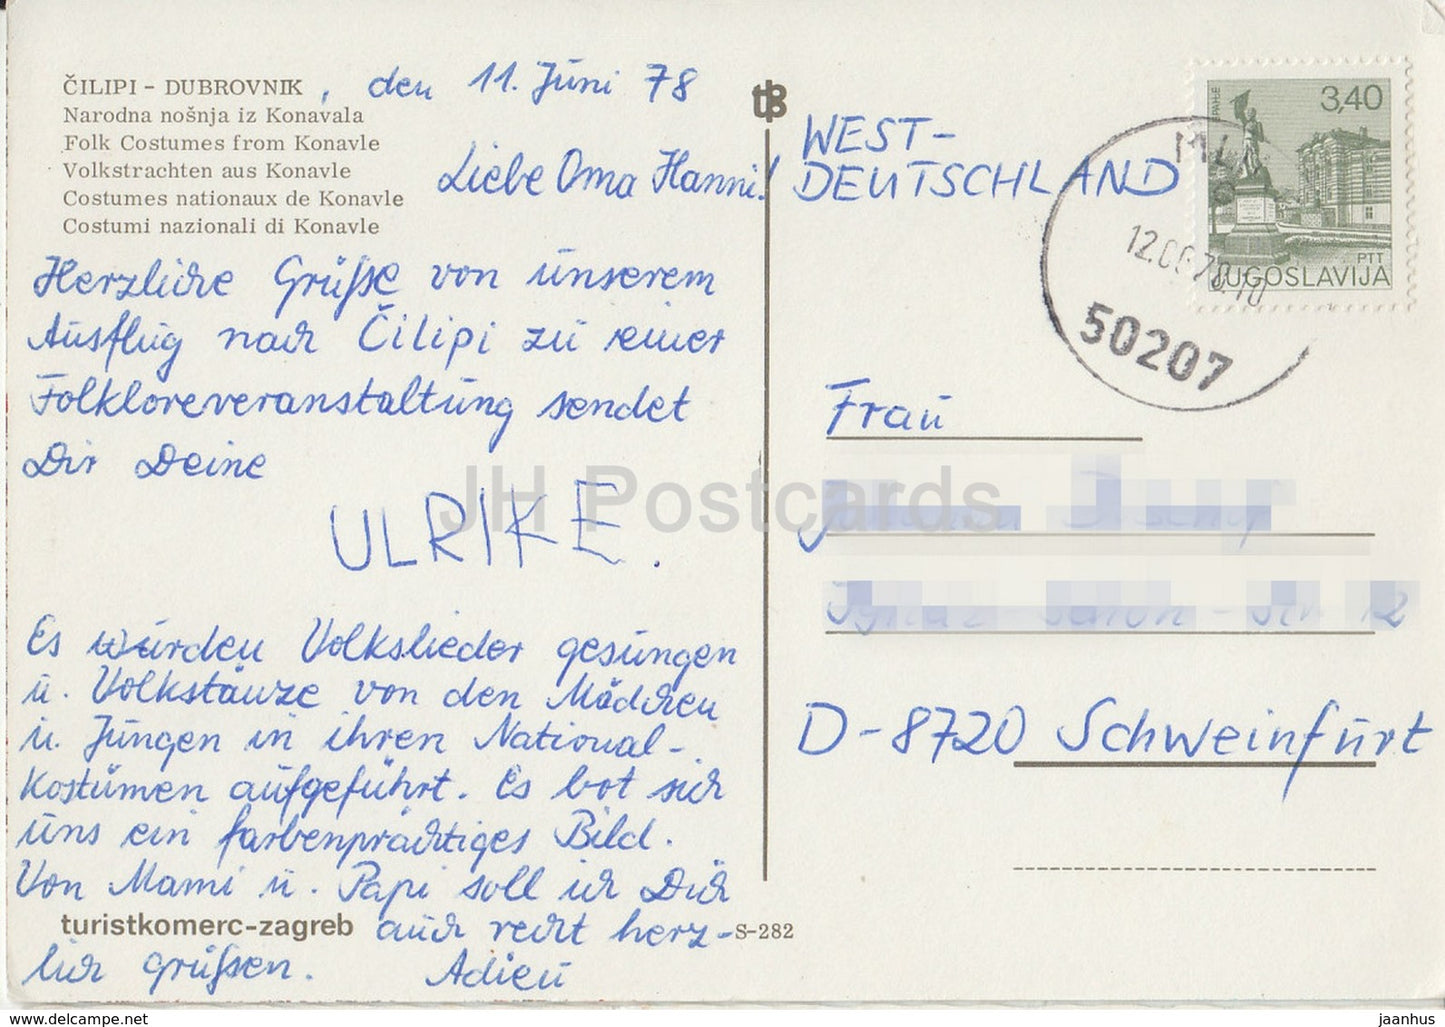 ČILIPI - DUBROVNIK, den 11. Juni 78
Narodna nošnja iz Konavala
Folk Costumes from Konavle
Volkstrachten aus Konavle
Costumes nationaux de Konavle
Costumi nazionali di Konavle
Liebe Oma Hanni!
Herzliche Grüße von unserem
Ausflug nach Čilipi zu einer
Folkloreveranstaltung sendet
Dir Deine
ULRIKE.
Es wurden Volkslieder gesungen
u. Volkstänze von den Mädchen
u. Jungen in ihren National-
kostümen aufgeführt. Es bot sich
uns ein farbenprächtiges Bild.
Von Mami u. Papi soll ich Dich
auch recht herz-
lich grüßen. Adieu
turistkomerc-zagreb
S-282
WEST-
DEUTSCHLAND
3,40
PTT
JUGOSLAVIJA
12.06.78.10
50207
Frau
12
D-8720 Schweinfurt
JH Postcards
www.delcampe.net
jaanhus